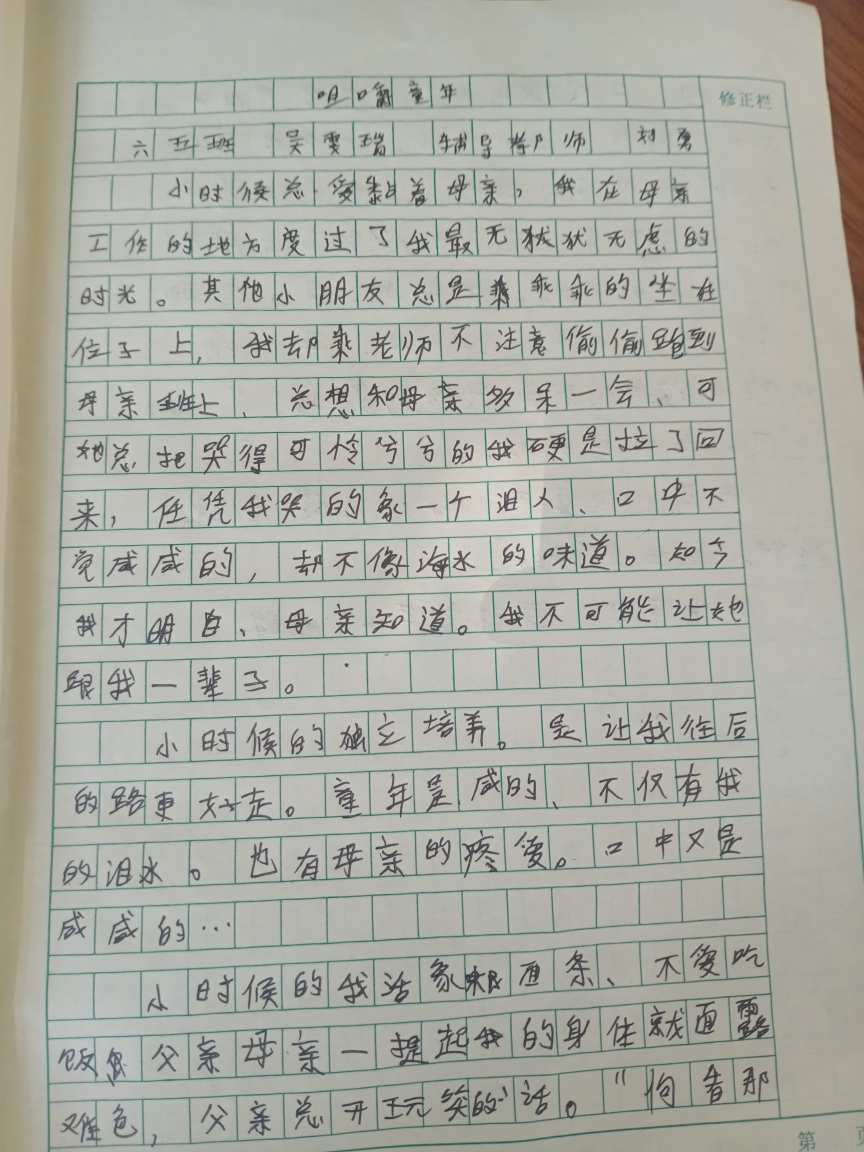 咀嚼童年
修正栏
六五班 吴雯 辅导老师 刘勇
小时候总爱黏着母亲，我在母亲
工作的地方度过了我最无忧无虑的
时光。其他小朋友总是乖乖的坐在
位子上，我却乘老师不注意偷偷跑到
母亲班上、总想和母亲多呆一会、可
她总把哭得可怜兮兮的我硬是拉了回
来，任凭我哭的象一个泪人、口中不
觉咸咸的，却不像海水的味道。如今
我才明白、母亲知道。我不可能让她
跟我一辈子。
小时候的独立培养。是让我往后
的路更好走。童年是咸的、不仅有我
的泪水。也有母亲的疼爱。口中又是
咸咸的…
小时候的我活象根面条、不爱吃
饭，父亲母亲一提起我的身体就面露
难色，父亲总开玩笑的话。"向着那
第 页